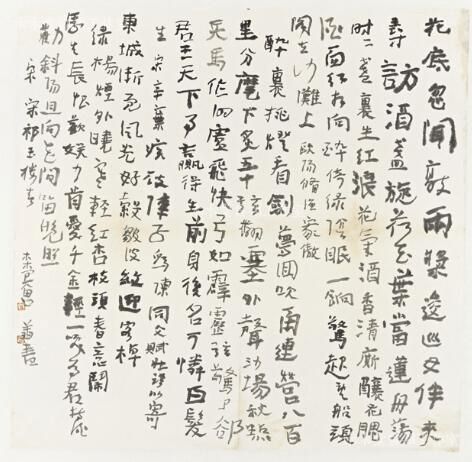 花底忽聞敲兩槳逡巡女伴來
尋訪酒盞旋將荷葉當蓮舟蕩
時時盞裏生紅浪花氣酒香清廝釀花腮
酒面紅相向醉倚綠陰眠一餉驚起望船頭
閣在沙灘上歐陽修漁家傲
醉裏挑燈看劍夢回吹角連營八百
里分麾下炙五十弦翻塞外聲沙場秋點
兵馬作的盧飛快弓如霹靂弦驚了卻
君王天下事贏得生前身後名可憐白髮
生宋辛棄疾破陣子為陳同父賦壯語以寄
東城漸覺風光好縠皺波紋迎客棹
綠楊煙外曉寒輕紅杏枝頭春意鬧
浮生長恨歡娛少肯愛千金輕一笑為君持酒
勸斜陽且向花間留晚照
宋宋祁玉樓春
書